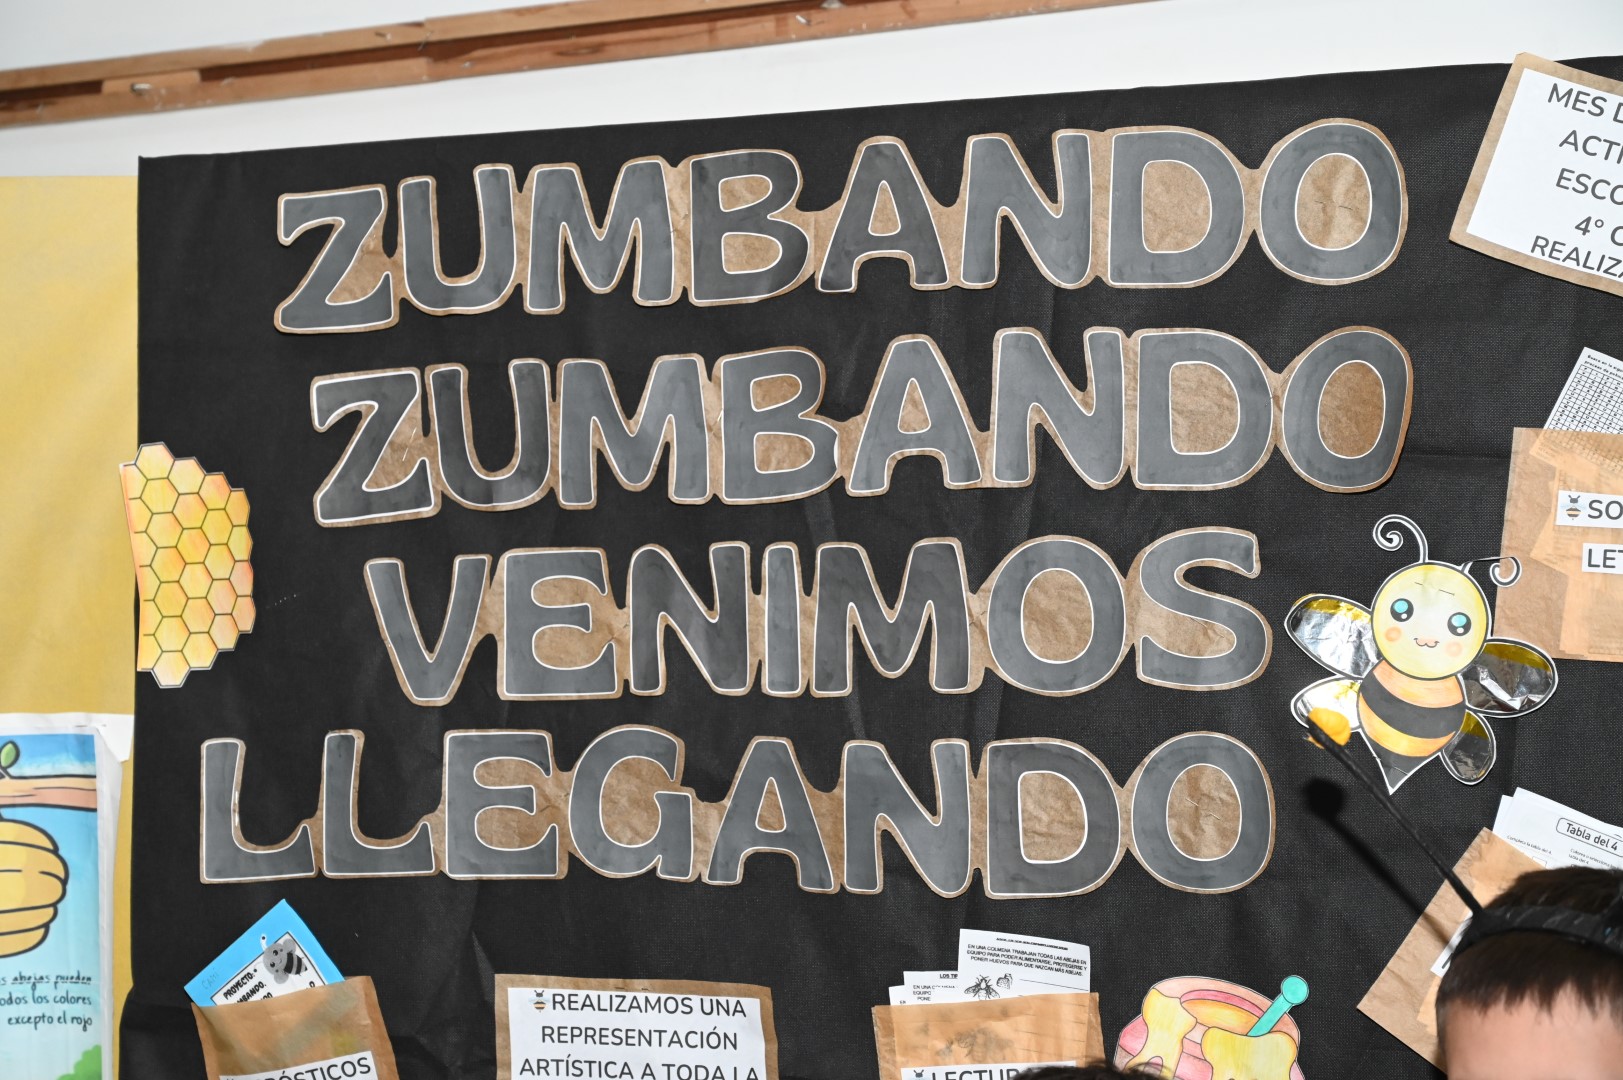 ZUMBANDO
ZUMBANDO
VENIMOS
LLEGANDO
MES
ACTI
ESCO
4° C
REALIZ
SO
LET
Tabla del 4
abejas pueden
odos los colores
excepto el rojo
PROYECTO:"
REALIZAMOS UNA
REPRESENTACIÓN
ARTÍSTICA A TODA LA
EN UNA COLMENA TRABAJAN TODAS LAS ABEJAS EN
EQUIPO PARA PODER ALIMENTARSE, PROTEGERSE Y
PONER HUEVOS PARA QUE NAZCAN MÁS ABEJAS.
LECTUR